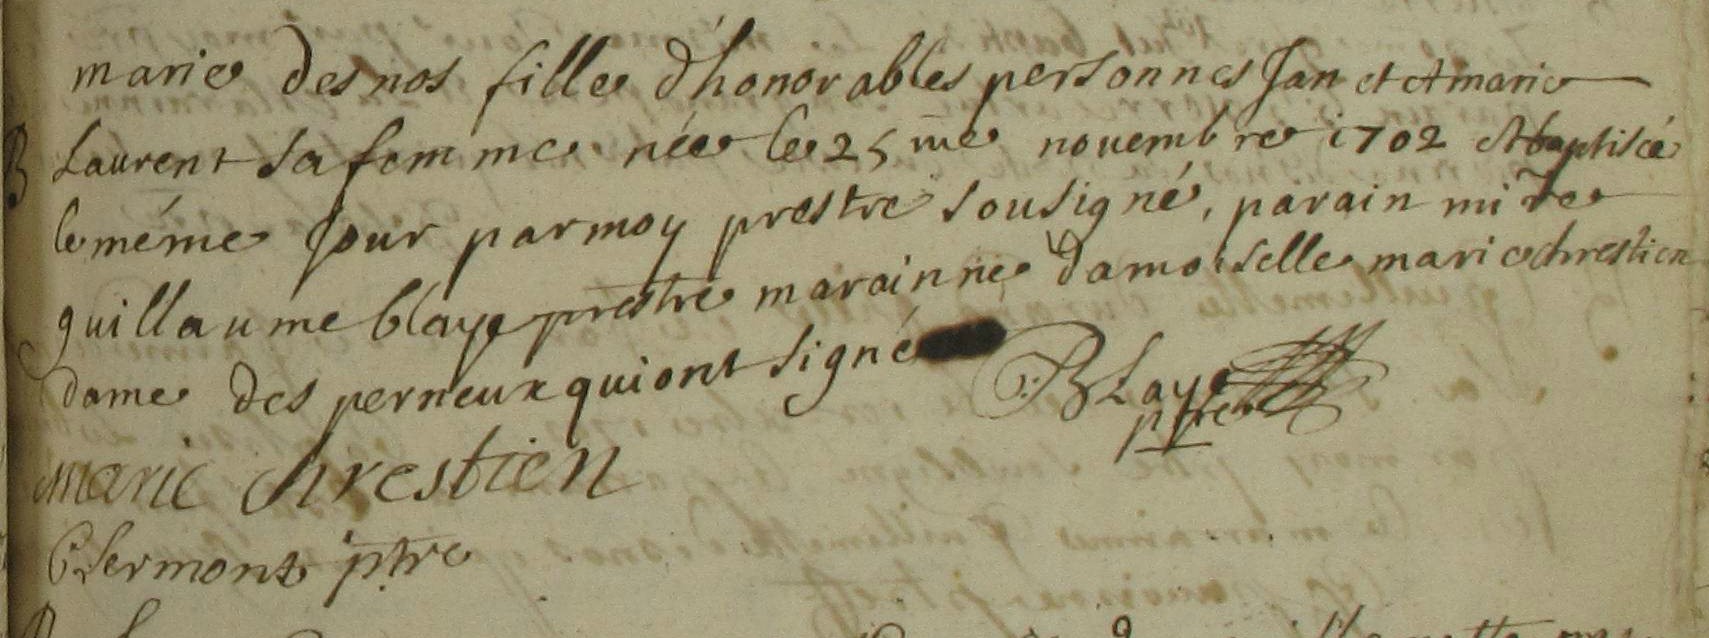 marie desnos fille d'honorables personnes Jan et et marie
B Laurent sa femme née le 25me novembre 1702 et baptisée
le méme Jour par moy prestre sousigné, parain mire
guillaume blaye prestre marainne damoiselle marie chrestien
dame des perneux qui ont signé
Blaye
ptre
marie chrestien
Clermont ptre